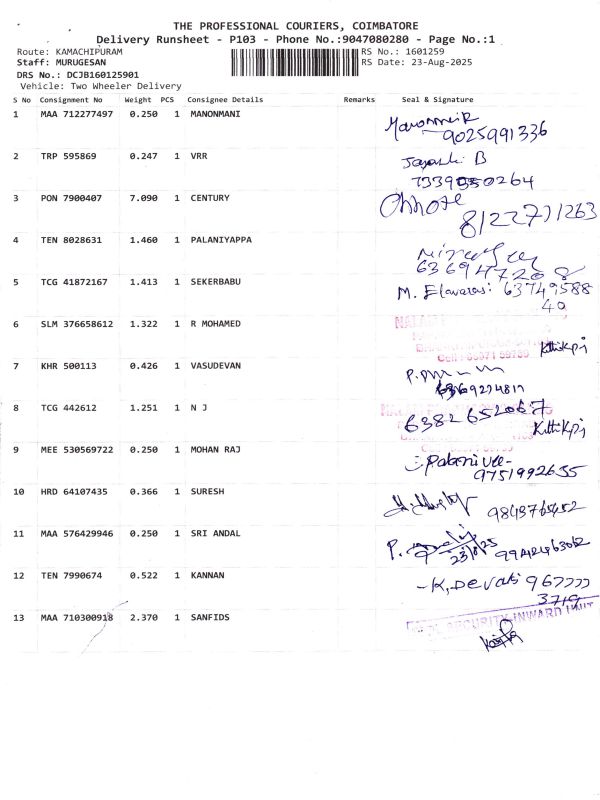 THE PROFESSIONAL COURIERS, COIMBATORE
Delivery Runsheet - P103 - Phone No.:9047080280 - Page No.:1
Route: KAMACHIPURAM RS No.: 1601259
Staff: MURUGESAN RS Date: 23-Aug-2025
DRS No.: DCJB160125901
Vehicle: Two Wheeler Delivery
S No Consignment No Weight PCS Consignee Details Remarks Seal & Signature
1 MAA 712277497 0.250 1 MANONMANI
9025991336
2 TRP 595869 0.247 1 VRR
B
7339550264
3 PON 7900407 7.090 1 CENTURY
8122771263
4 TEN 8028631 1.460 1 PALANIYAPPA
5 TCG 41872167 1.413 1 SEKERBABU M. Elavarasi: 63749588
40
6 SLM 376658612 1.322 1 R MOHAMED
7 KHR 500113 0.426 1 VASUDEVAN
8 TCG 442612 1.251 1 N J
6382652067
9 MEE 530569722 0.250 1 MOHAN RAJ
9751992655
10 HRD 64107435 0.366 1 SURESH
11 MAA 576429946 0.250 1 SRI ANDAL
P. 23/8/25
12 TEN 7990674 0.522 1 KANNAN K. Devaki 967777
3719
13 MAA 710300918 2.370 1 SANFIDS SECURITY INWARD UNIT